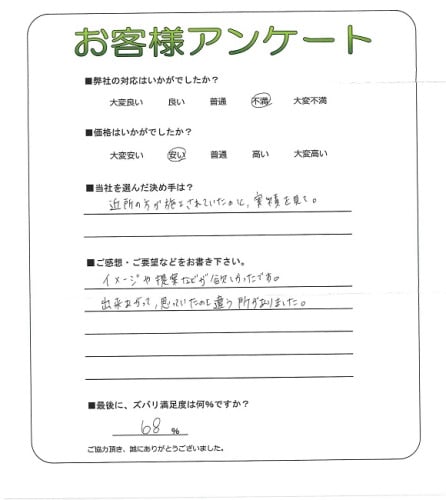 お客様アンケート
■弊社の対応はいかがでしたか？
大変良い 良い 普通 不満 大変不満
■価格はいかがでしたか？
大変安い 安い 普通 高い 大変高い
■当社を選んだ決め手は？
近所の方が施工されていたのと、実績を見て。
■ご感想・ご要望などをお書き下さい。
イメージや提案などが欲しかったです。
出来あがって、思っていたのと違う所がありました。
■最後に、ズバリ満足度は何%ですか？
68 %
ご協力頂き、誠にありがとうございました。